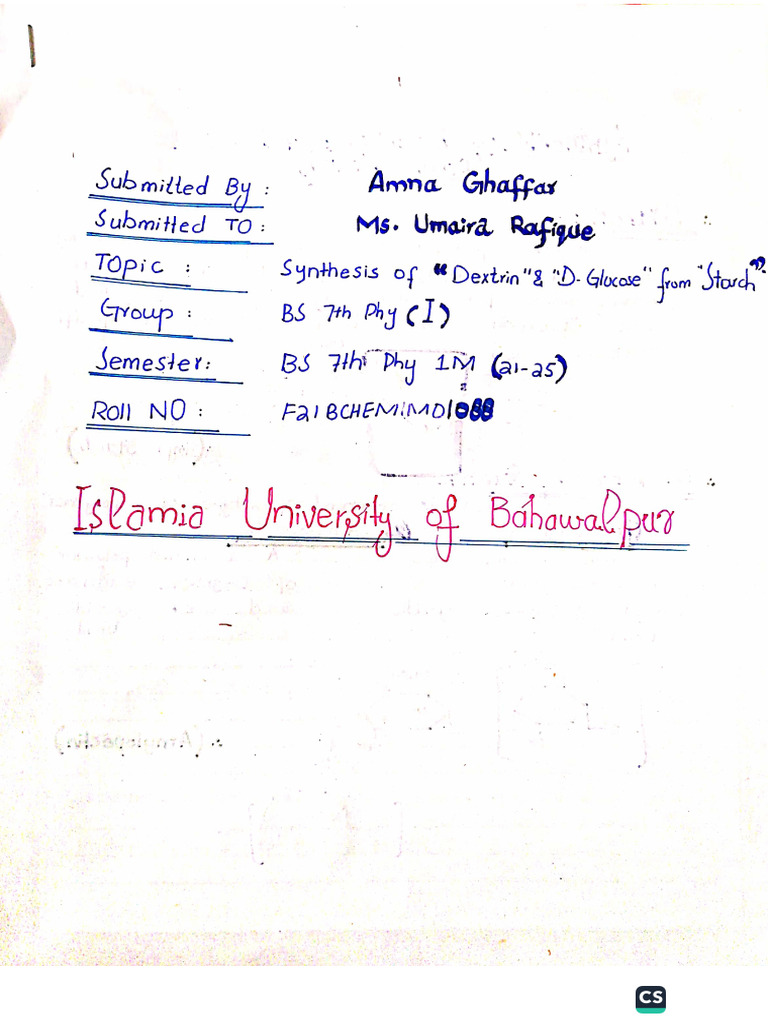 Submitted By : Amna Ghaffar
Submitted TO : Ms. Umaira Rafique
Topic : Synthesis of "Dextrin" & "D-Glucose" from "Starch".
Group : BS 7th Phy (I)
Semester: BS 7th Phy 1M (21-25)
Roll NO : F21BCHEM1M01088
Islamia University of Bahawalpur
(Amylopectin)
CS